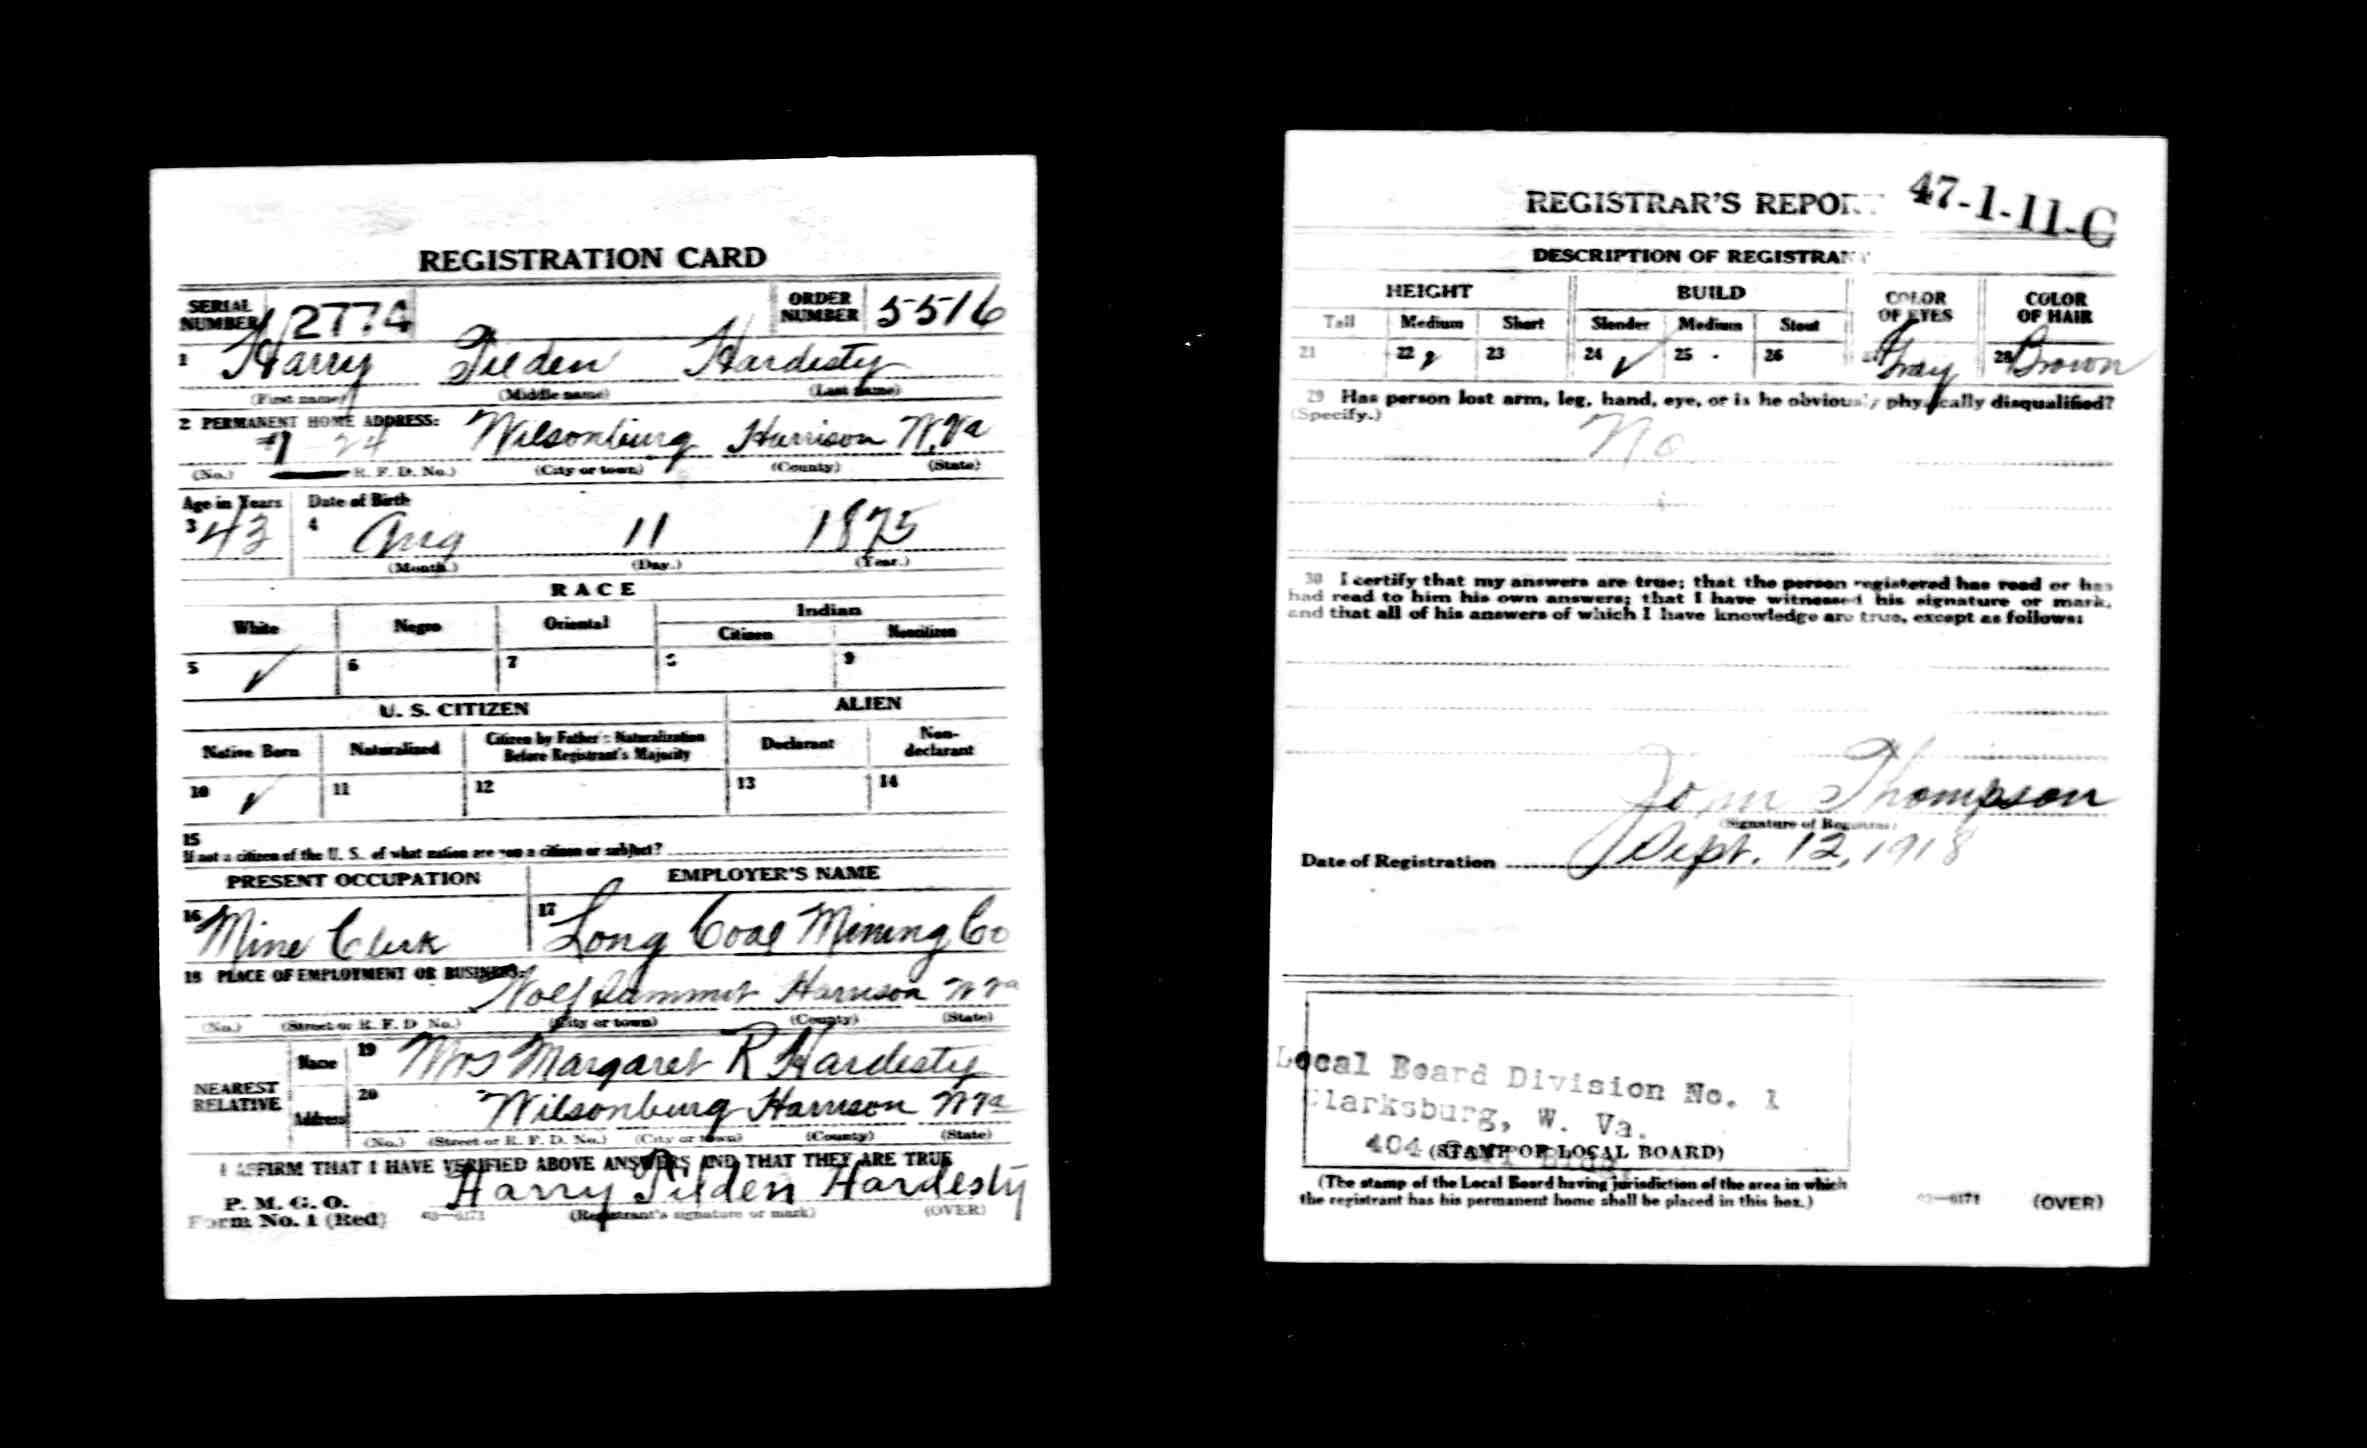 REGISTRATION CARD
SERIAL NUMBER 2774 ORDER NUMBER 5516
1 Harry Tilden Hardesty
(First name) (Middle name) (Last name)
2 PERMANENT HOME ADDRESS:
#1 - 24 Wilsonburg Harrison W.Va
(No.) R. F. D. No.) (City or town) (County) (State)
Age in Years Date of Birth
3 43 4 Aug 11 1875
(Month.) (Day.) (Year.)
RACE
White Negro Oriental Indian
Citizen Noncitizen
5 ✓ 6 7 8 9
U. S. CITIZEN ALIEN
Native Born Naturalized Citizen by Father's Naturalization Before Registrant's Majority Declarant Non-declarant
10 ✓ 11 12 13 14
15
If not a citizen of the U. S., of what nation are you a citizen or subject?
PRESENT OCCUPATION EMPLOYER'S NAME
16 Mine Clerk 17 Long Coal Mining Co
18 PLACE OF EMPLOYMENT OR BUSINESS:
Wolf Summit Harrison W Va
(No.) (Street or R. F. D. No.) (City or town) (County) (State)
NEAREST RELATIVE Name 19 Mrs Margaret R Hardesty
Address 20 Wilsonburg Harrison W Va
(No.) (Street or R. F. D. No.) (City or town) (County) (State)
I AFFIRM THAT I HAVE VERIFIED ABOVE ANSWERS AND THAT THEY ARE TRUE
P. M. G. O.
Form No. 1 (Red) Harry Tilden Hardesty
(Registrant's signature or mark) (OVER)
REGISTRAR'S REPORT 47-1-11-C
DESCRIPTION OF REGISTRANT
HEIGHT BUILD COLOR OF EYES COLOR OF HAIR
Tall Medium Short Slender Medium Stout
21 22 23 24 ✓ 25 26 Gray 28 Brown
29 Has person lost arm, leg, hand, eye, or is he obviously physically disqualified?
(Specify.)
No
30 I certify that my answers are true; that the person registered has read or has
had read to him his own answers; that I have witnessed his signature or mark,
and that all of his answers of which I have knowledge are true, except as follows:
John Thompson
(Signature of Registrar)
Date of Registration Sept. 12, 1918
Local Board Division No. 1
Clarksburg, W. Va.
404
(STAMP OF LOCAL BOARD)
(The stamp of the Local Board having jurisdiction of the area in which
the registrant has his permanent home shall be placed in this box.)
(OVER)